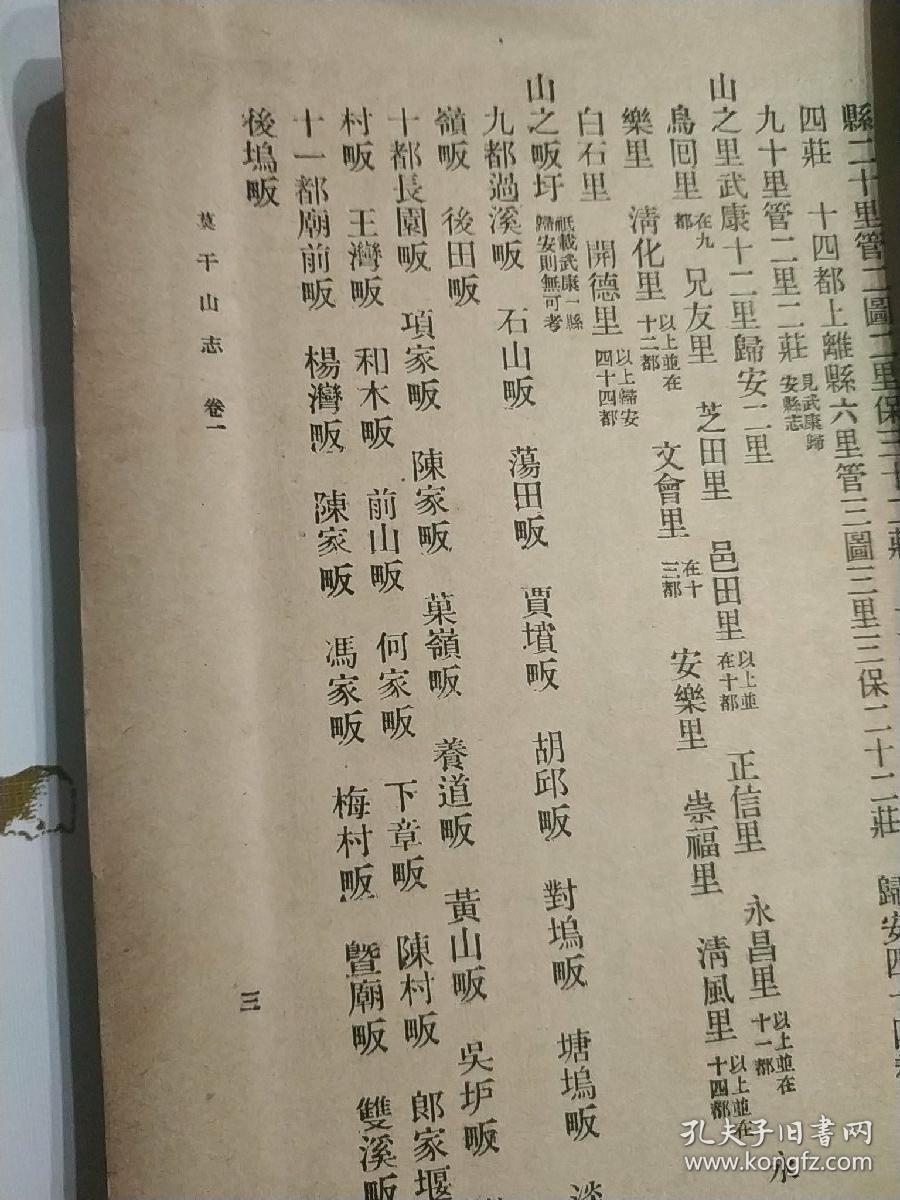 縣二十里管二圖二里保三十二莊
四莊　十四都上離縣六里管三圖三里三保二十二莊　歸安四十四
九十里管二里二莊見武康歸安縣志
山之里武康十二里歸安二里
鳥回里在九都　兄友里　芝田里　邑田里以上並在十都　正信里　永昌里以上並在十一都　永
樂里　淸化里以上並在十二都　文會里在十三都　安樂里　崇福里　淸風里以上並在十四都
白石里　開德里以上歸安四十四都
山之畈圩祗載武康一縣歸安則無可考
九都過溪畈　石山畈　蕩田畈　賈墳畈　胡邱畈　對塢畈　塘塢畈
嶺畈　後田畈
十都長園畈　項家畈　陳家畈　菓嶺畈　養道畈　黃山畈　吳圹畈
村畈　王灣畈　和木畈　前山畈　何家畈　下章畈　陳村畈　郎家堰
十一都廟前畈　楊灣畈　陳家畈　馮家畈　梅村畈　曁廟畈　雙溪畈
後塢畈
莫干山志　卷一
三
孔夫子旧书网